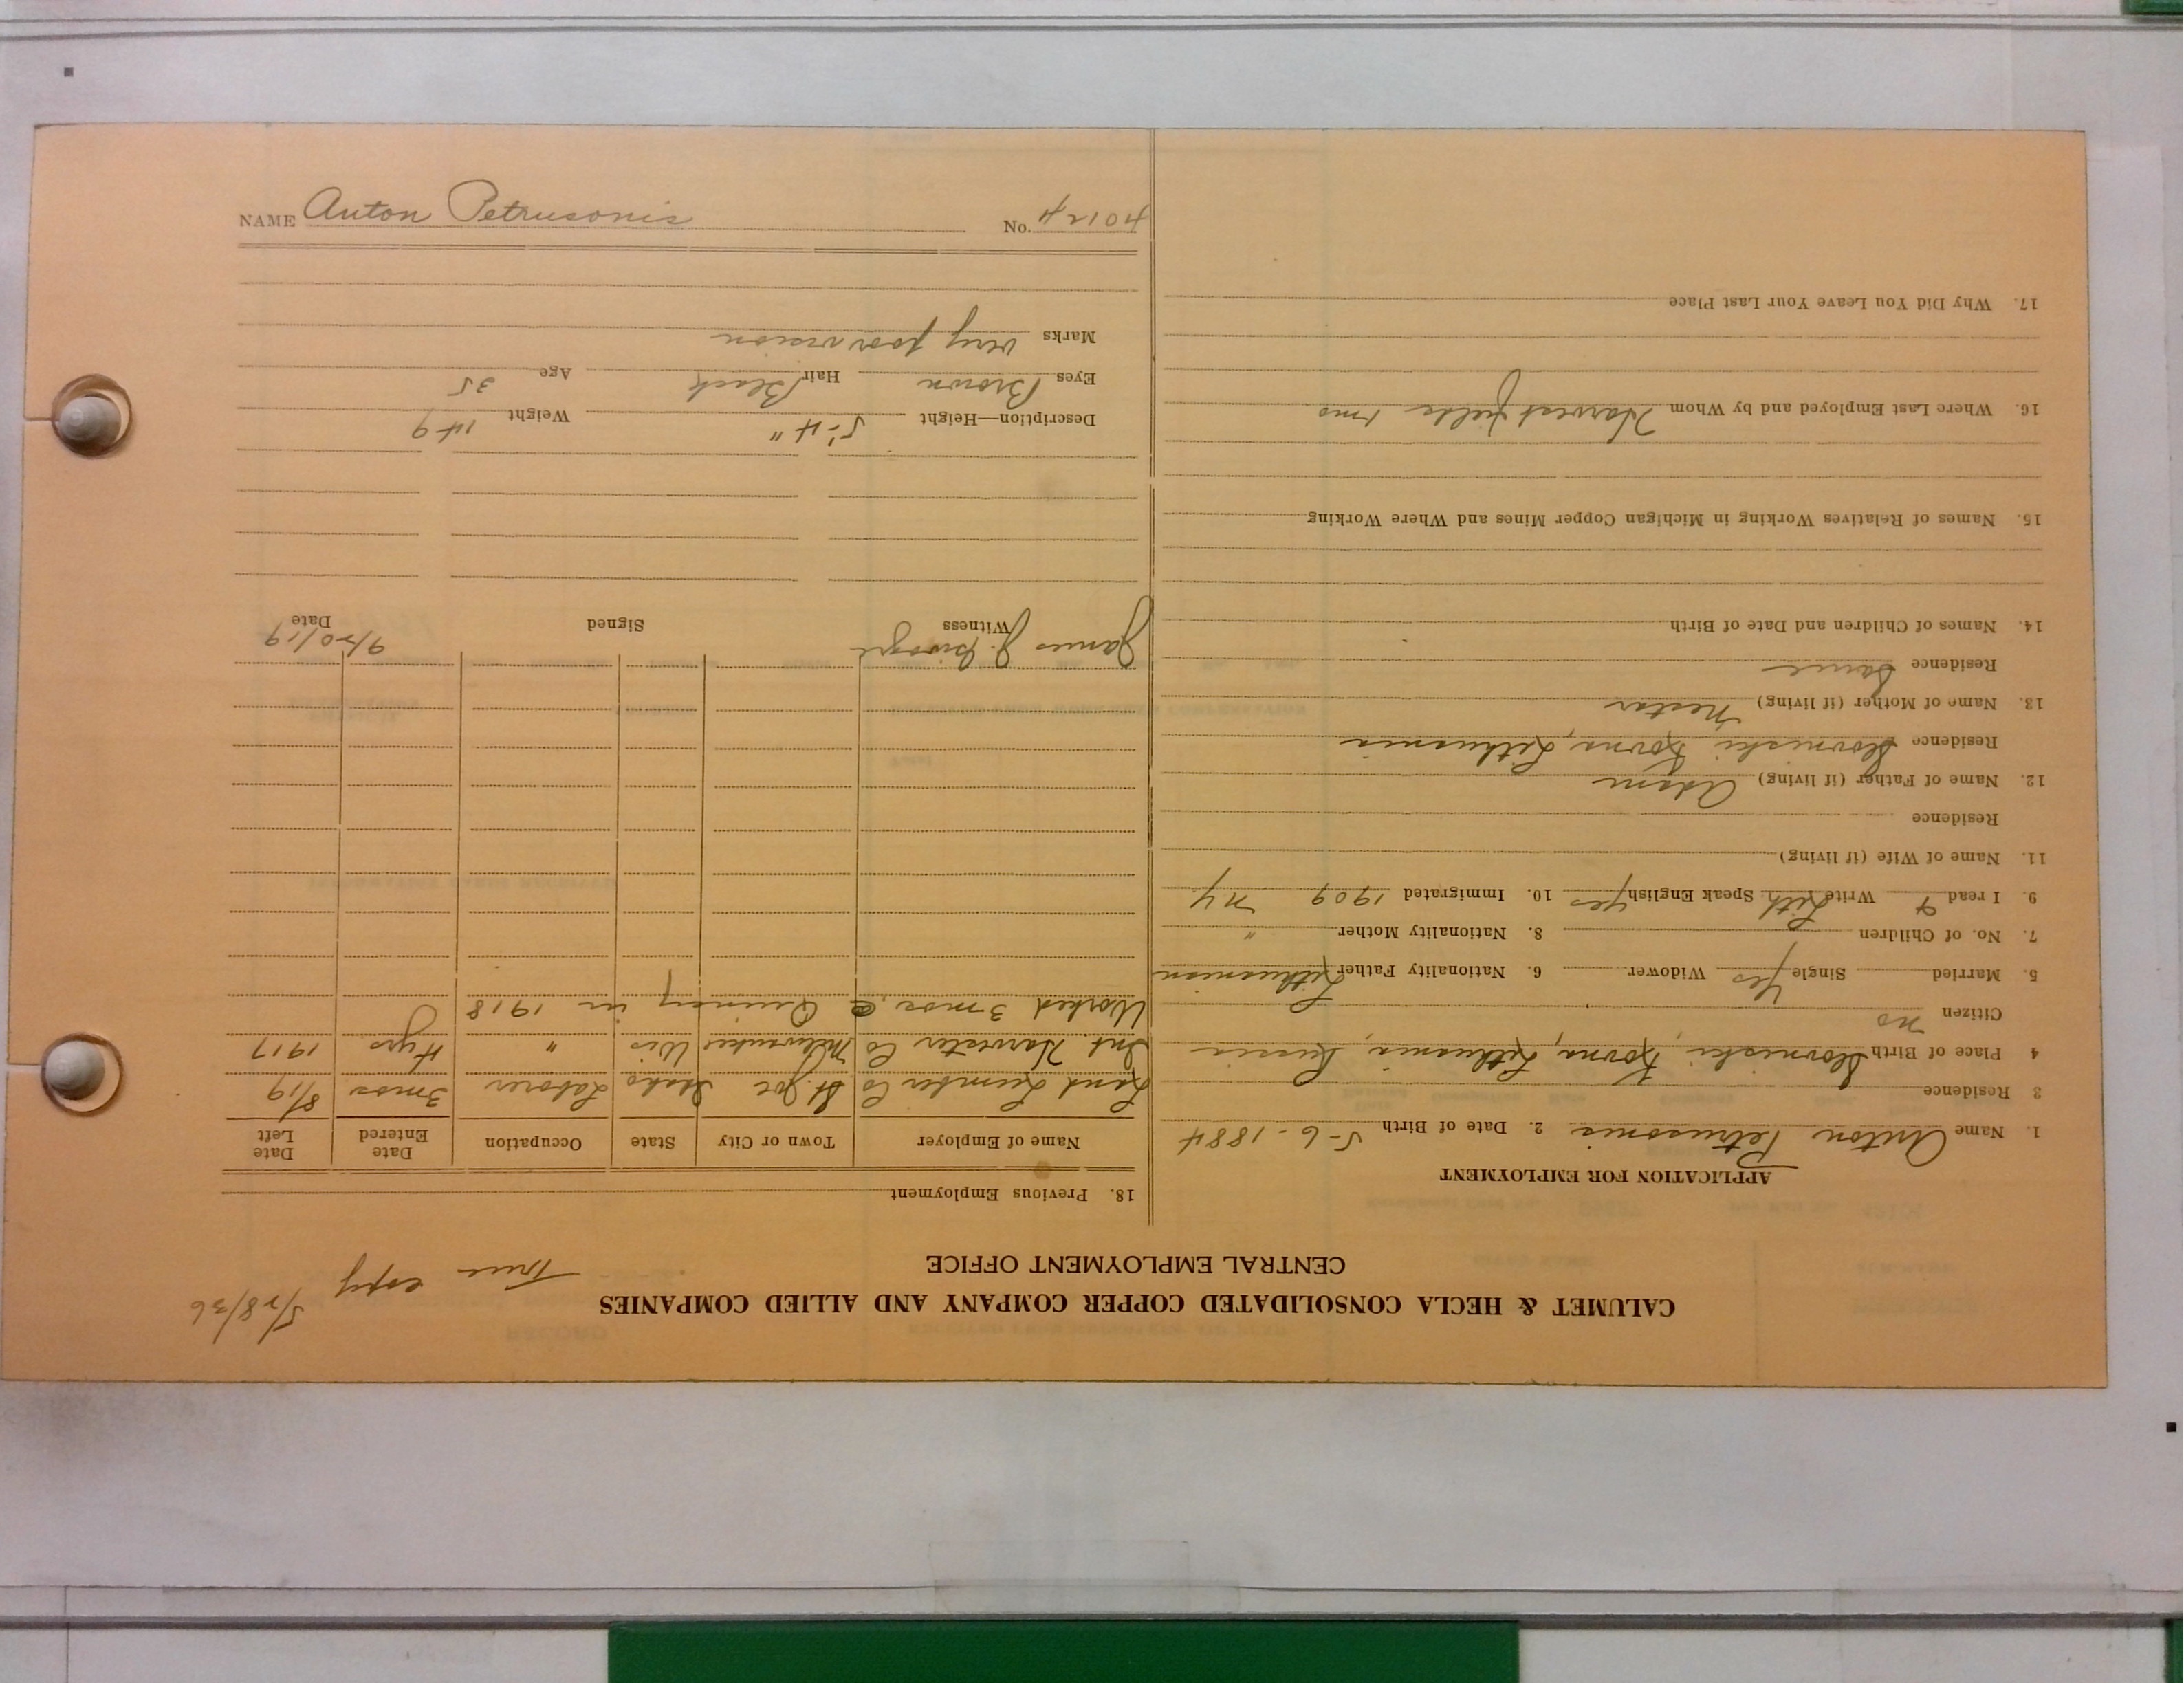 CALUMET & HECLA CONSOLIDATED COPPER COMPANY AND ALLIED COMPANIES
CENTRAL EMPLOYMENT OFFICE
True copy 5/28/36
APPLICATION FOR EMPLOYMENT
1. Name Anton Petrusonis 2. Date of Birth 5-6-1884
3 Residence
4 Place of Birth Slovniski, Kovna, Lithuania, Russia
Citizen no
5. Married Single Yes Widower 6. Nationality Father Lithuanian
7. No. of Children 8. Nationality Mother "
9. I read & Write Lith Speak English yes 10. Immigrated 1909 NY
11. Name of Wife (if living)
Residence
12. Name of Father (if living) Adam
Residence Slovniski Kovna, Lithuania
13. Name of Mother (if living) Nestar
Residence Same
14. Names of Children and Date of Birth
15. Names of Relatives Working in Michigan Copper Mines and Where Working
16. Where Last Employed and by Whom Harvest fields 1 mo
17. Why Did You Leave Your Last Place
18. Previous Employment
Name of Employer Town or City State Occupation Date Entered Date Left
Lumber Co St. Joe Idaho Laborer 3 mos 8/19
Int. Harvester Co Milwaukee Wis " 4 yrs. 1917
Worked 3 mos @ Quincy in 1918
James J. 9/20/19
Witness Signed Date
Description—Height 5'-4" Weight 149
Eyes Brown Hair Black Age 35
Marks very poor vision
NAME Anton Petrusonis No. 40124